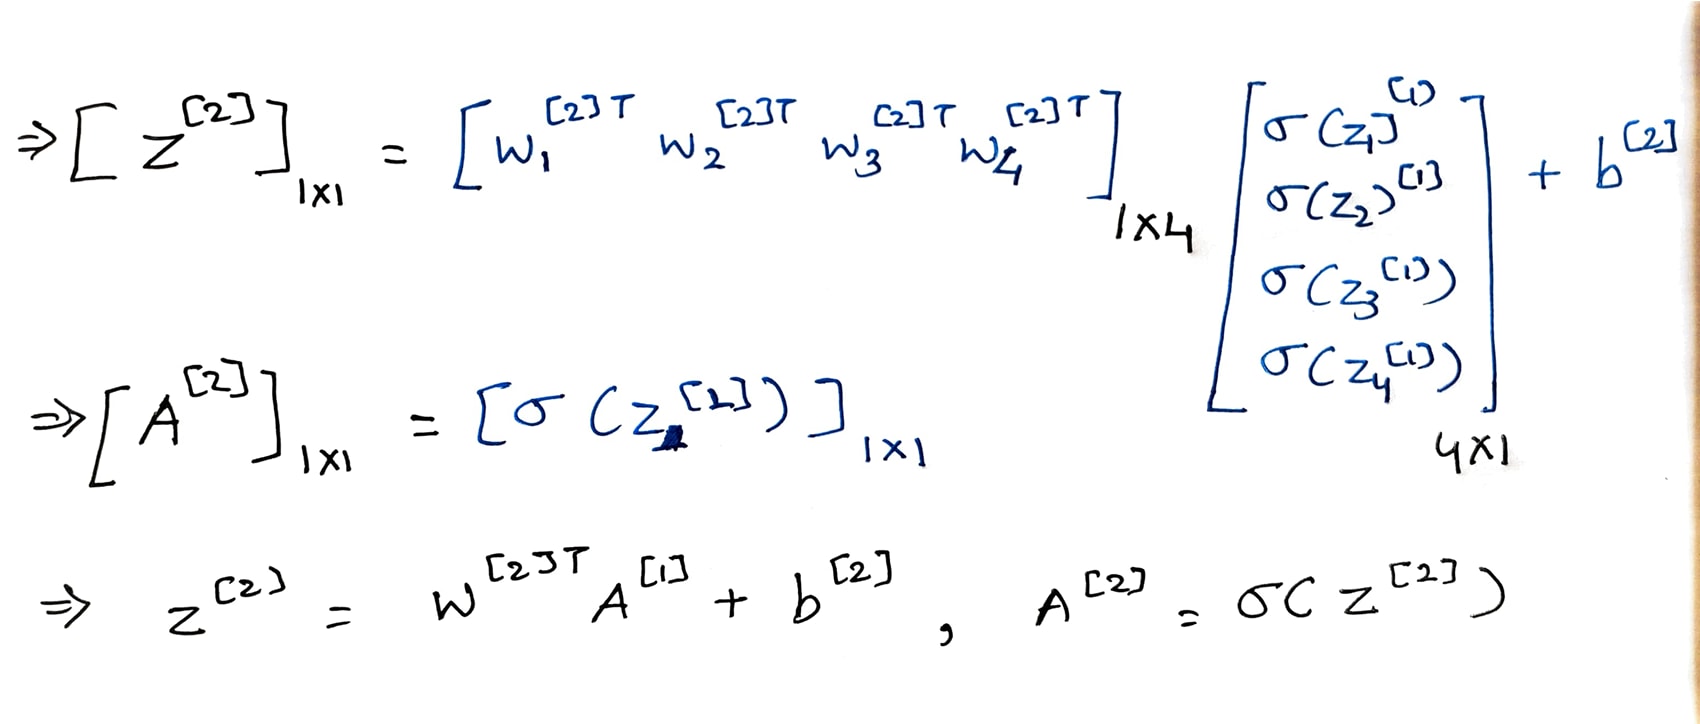 ⇒ [ z^[2] ]_1×1 = [ W_1^[2]T W_2^[2]T W_3^[2]T W_4^[2]T ]_1×4 [ σ(z_1)^[1] σ(z_2)^[1] σ(z_3^[1]) σ(z_4^[1]) ]_4×1 + b^[2]
⇒ [ A^[2] ]_1×1 = [ σ(z^[2]) ]_1×1
⇒ z^[2] = W^[2]T A^[1] + b^[2] , A^[2] = σ(z^[2])